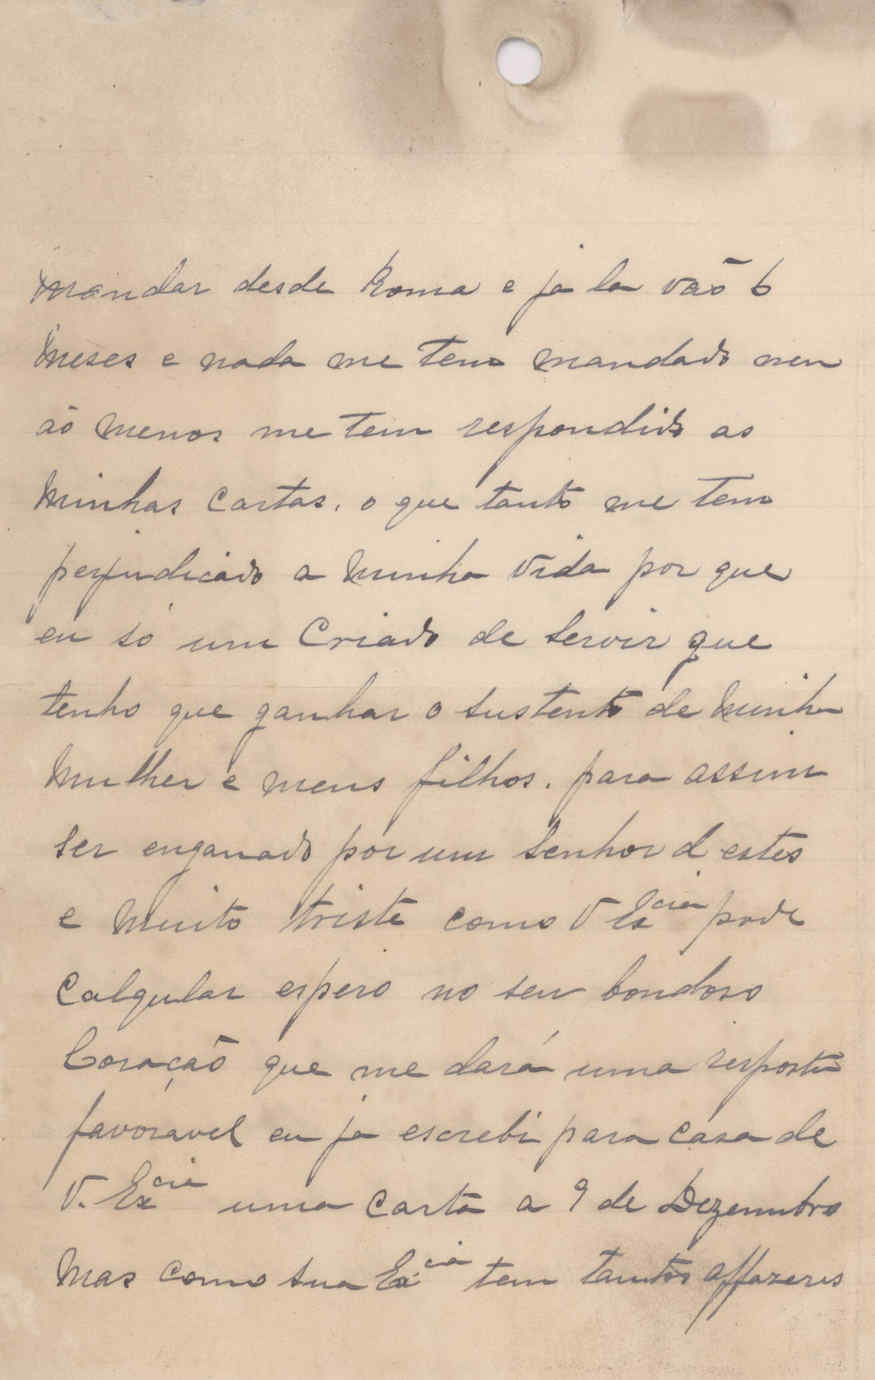 mandar desde Roma e ja la vão 6
meses e nada me tem mandado nen
ào menos me tem respondido as
minhas cartas. o que tanto me tem
perjudicado a minha vida por que
eu só um criado de servir que
tenho que ganhar o sustento de minha
mulher e meus filhos. para assim
ser enganado por um senhor d estes
e muito triste como V Ex.cia pode
calgular espero no seu bondoso
Coração que me dará uma resposta
favoravel eu ja escrebi para casa de
V. Ex.cia uma carta a 9 de Dezembro
mas como sua Ex.cia tem tantos affazeres